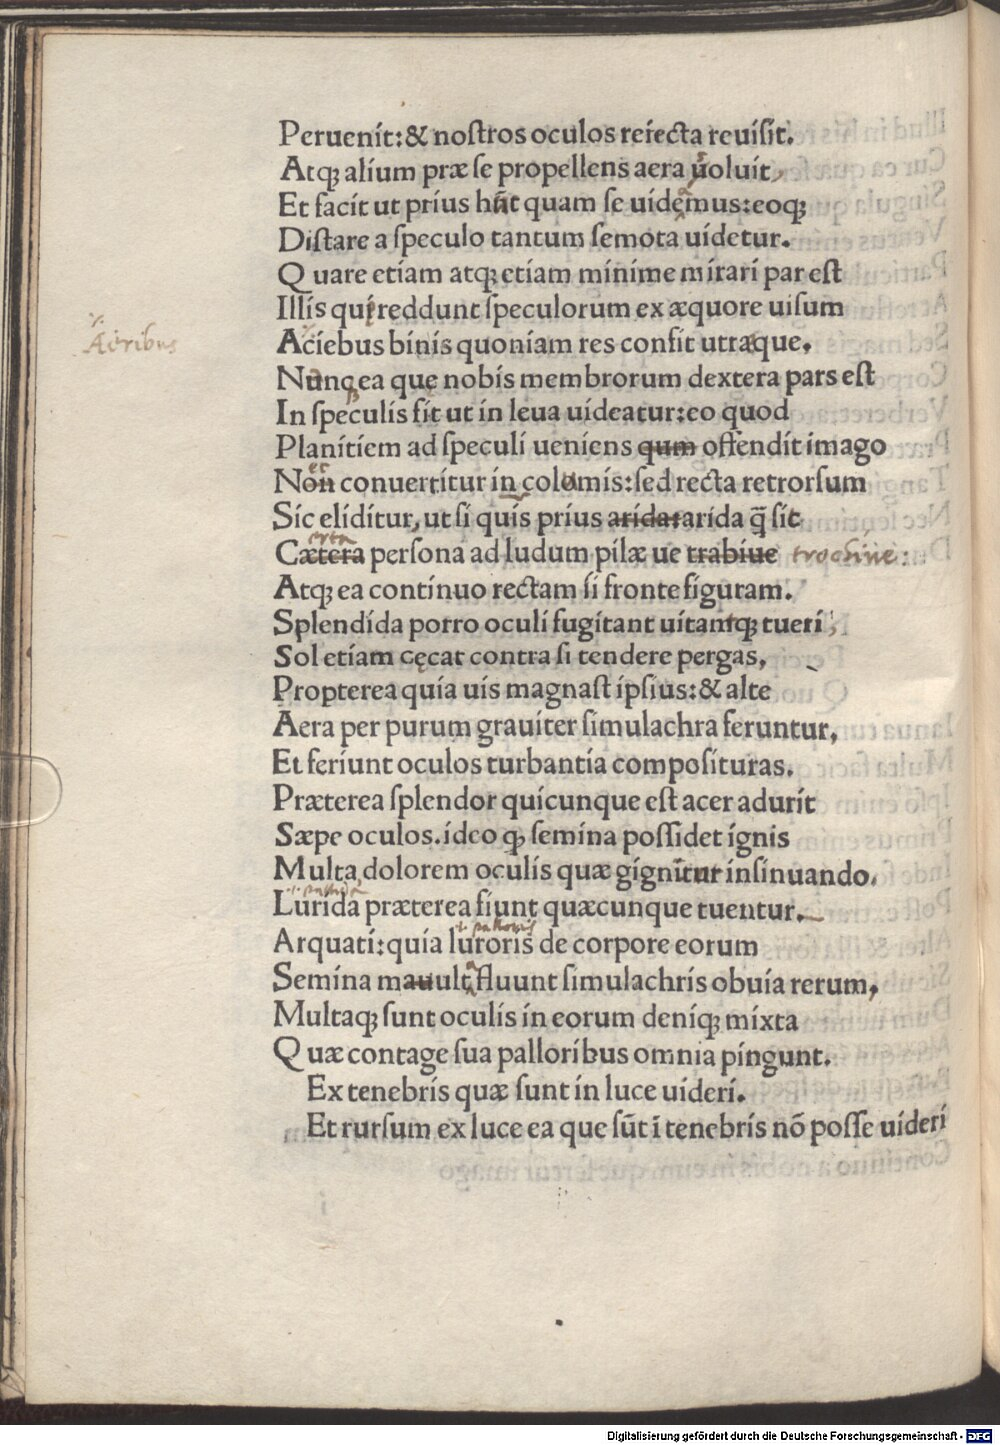 Peruenit:& noſtros oculos reiecta reuiſit.
Atq; alium præ ſe propellens aera uoluit,
Et facit ut prius hũc quam ſe uidęmus:eoq;
Diſtare a ſpeculo tantum ſemota uidetur.
Quare etiam atq; etiam minime mirari par eſt
Illis qui reddunt ſpeculorum ex æquore uiſum
Aeribus
Aciebus binis quoniam res confit utraque.
Nunc ea que nobis membrorum dextera pars eſt
In ſpeculis fit ut in leua uideatur:eo quod
Planitiem ad ſpeculi ueniens qum offendit imago
Non conuertitur in colomis:ſed recta retrorſum
Sic eliditur, ut ſi quis prius aridat arida q̃ ſit
erta
Cætera perſona ad ludum pilæ ue trabiue trochiue:
Atq; ea continuo rectam ſi fronte figuram.
Splendida porro oculi fugitant uitamq; tueri,
Sol etiam cęcat contra ſi tendere pergas,
Propterea quia uis magnaſt ipſius:& alte
Aera per purum grauiter ſimulachra feruntur,
Et feriunt oculos turbantia compoſituras.
Præterea ſplendor quicunque eſt acer adurit
Sæpe oculos.ideo q; ſemina poſſidet ignis
Multa, dolorem oculis quæ gignitur inſinuando.
i. pallida
Lurida præterea fiunt quæcunque tuentur.
i. palloris
Arquati:quia luroris de corpore eorum
Semina mauult fluunt ſimulachris obuia rerum,
Multaq; ſunt oculis in eorum deniq; mixta
Quæ contage ſua palloribus omnia pingunt.
Ex tenebris quæ ſunt in luce uideri.
Et rurſum ex luce ea que ſũt ĩ tenebris nõ poſſe uideri
Digitalisierung gefördert durch die Deutsche Forschungsgemeinschaft - DFG